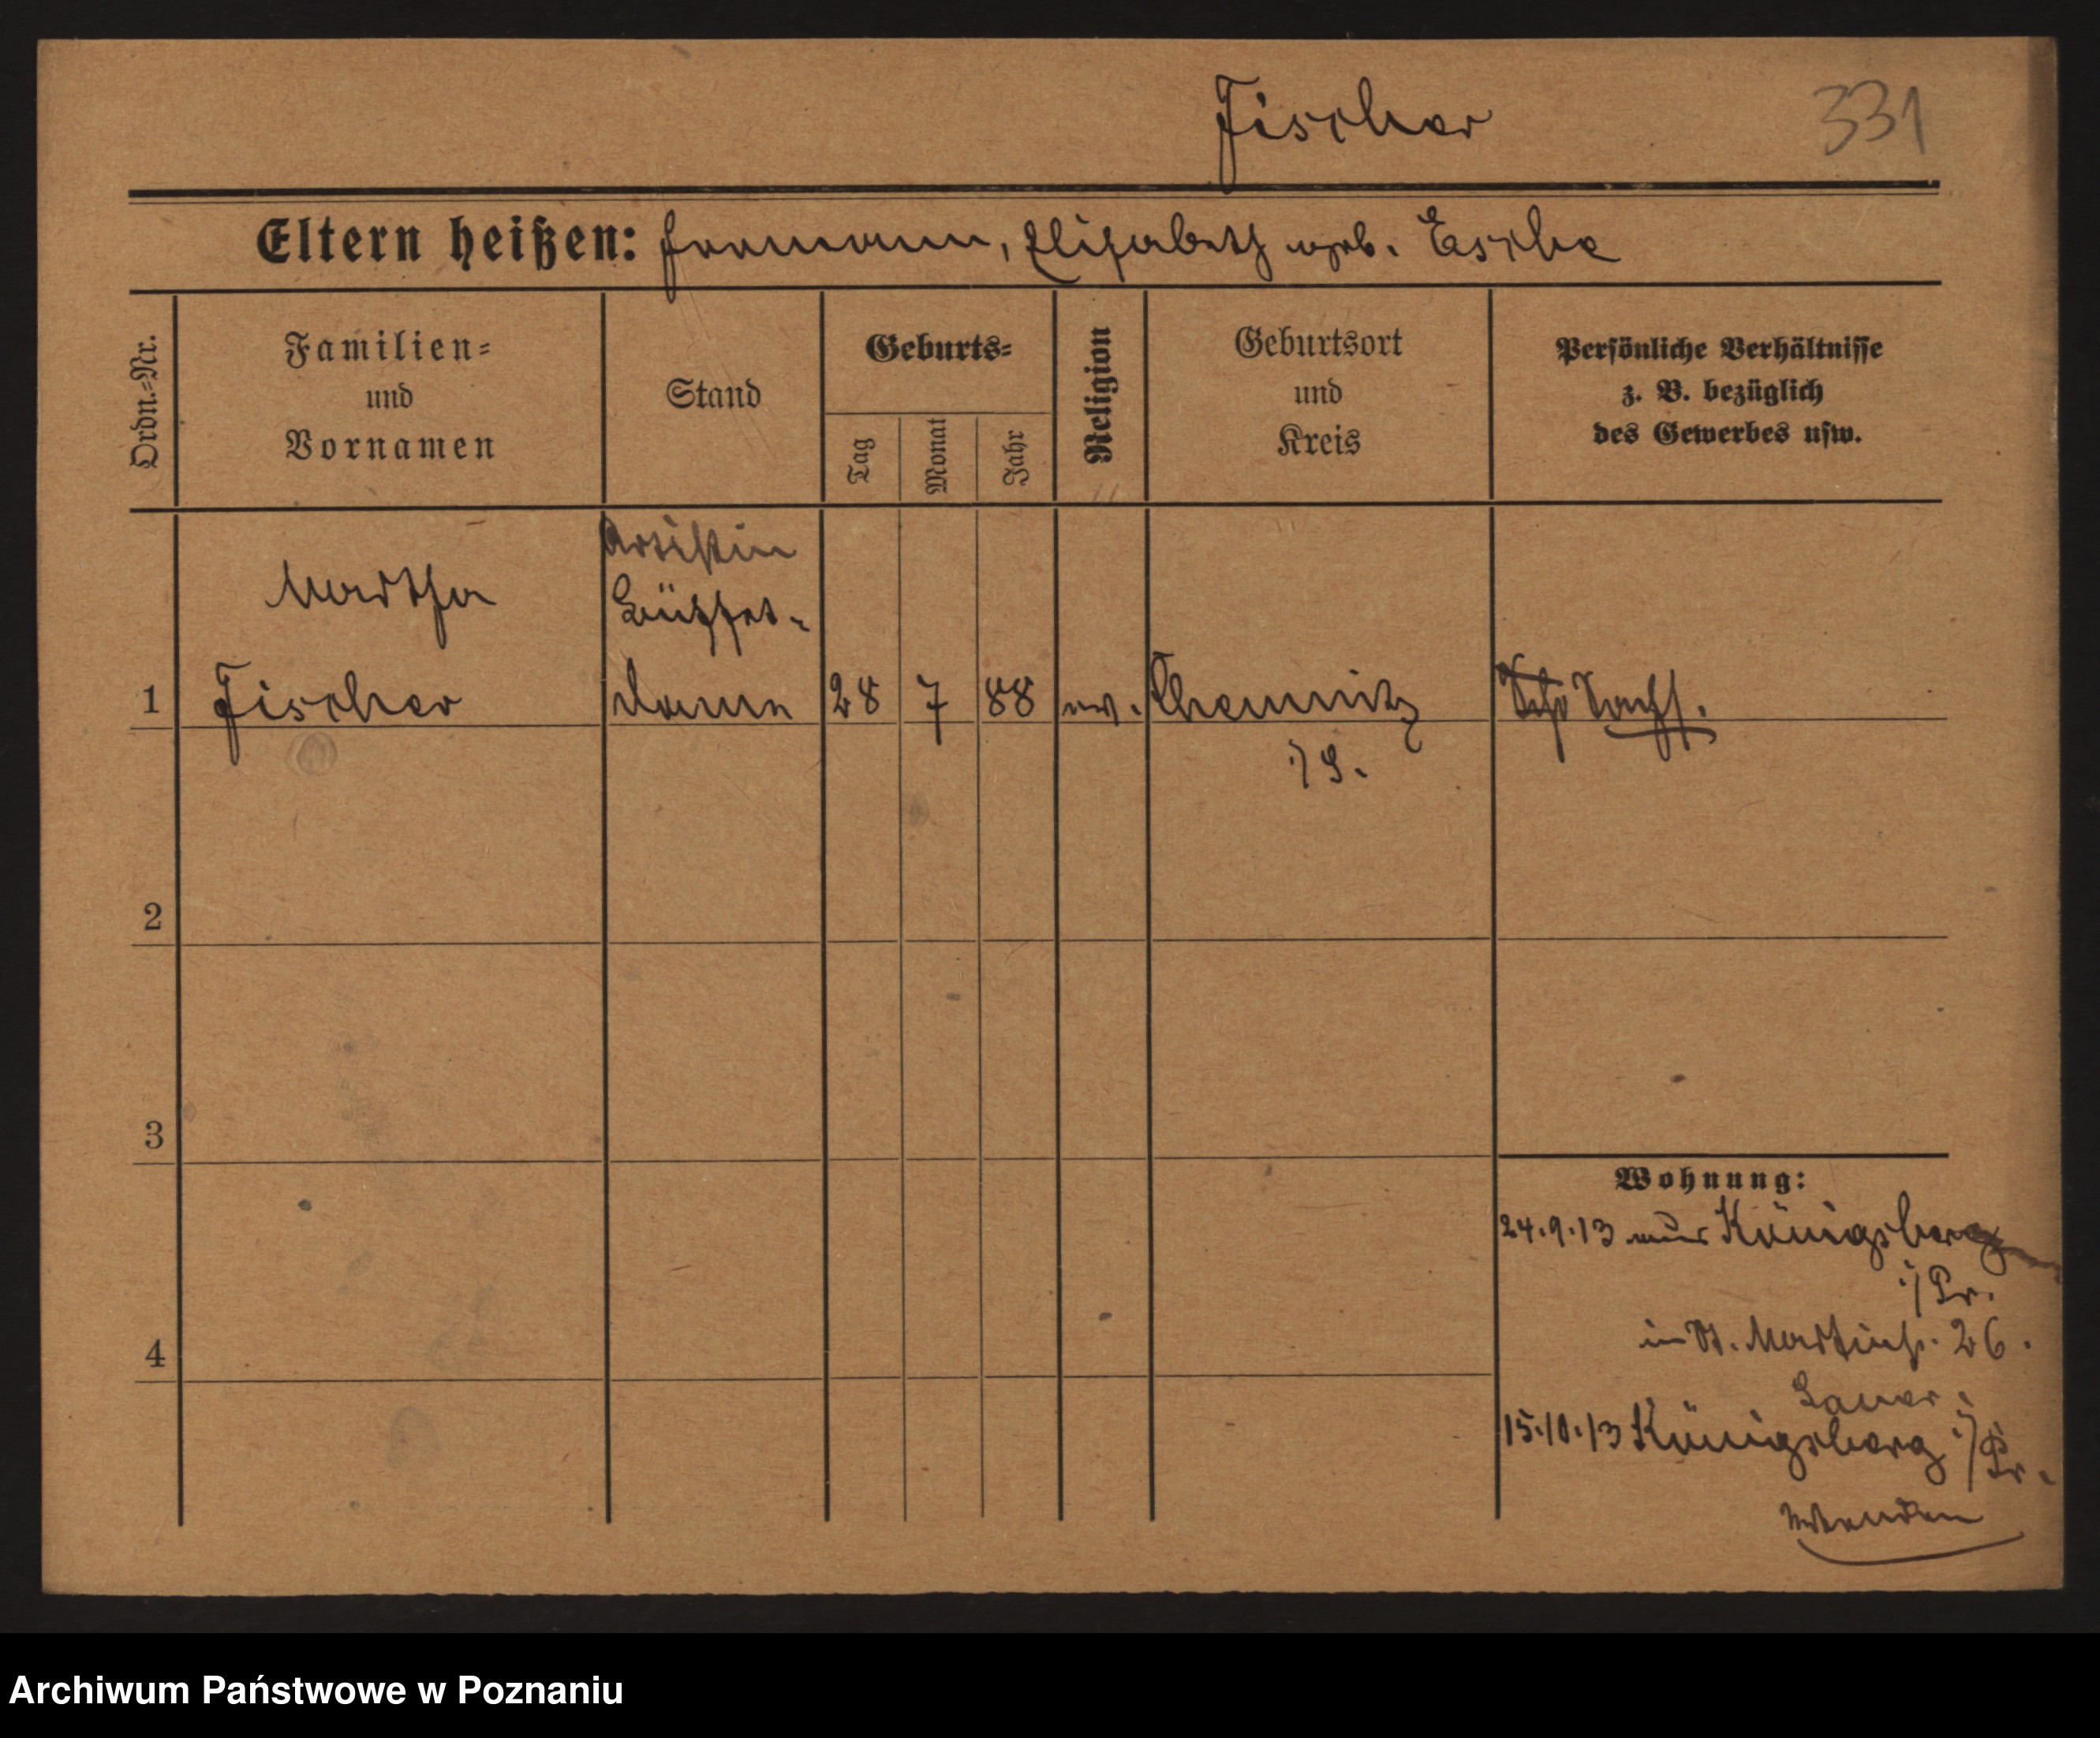 Fischer 331
Eltern heißen: Hermann, Elisabeth geb. Esche
Ordn.-Nr.
Familien-
und
Vornamen
Stand
Geburts-
Tag
Monat
Jahr
Religion
Geburtsort
und
Kreis
Persönliche Verhältnisse
z. B. bezüglich
des Gewerbes usw.
Artistin
Martha Büffet-
1 Fischer dame 28 7 88 ev. Chemnitz Sachs.
i/S.
2
3
Wohnung:
24.9.13 aus Königsberg
i/Pr.
in St. Martinstr. 26.
4
15.10.13 Königsberg i/Pr.
Wenden
Archiwum Państwowe w Poznaniu